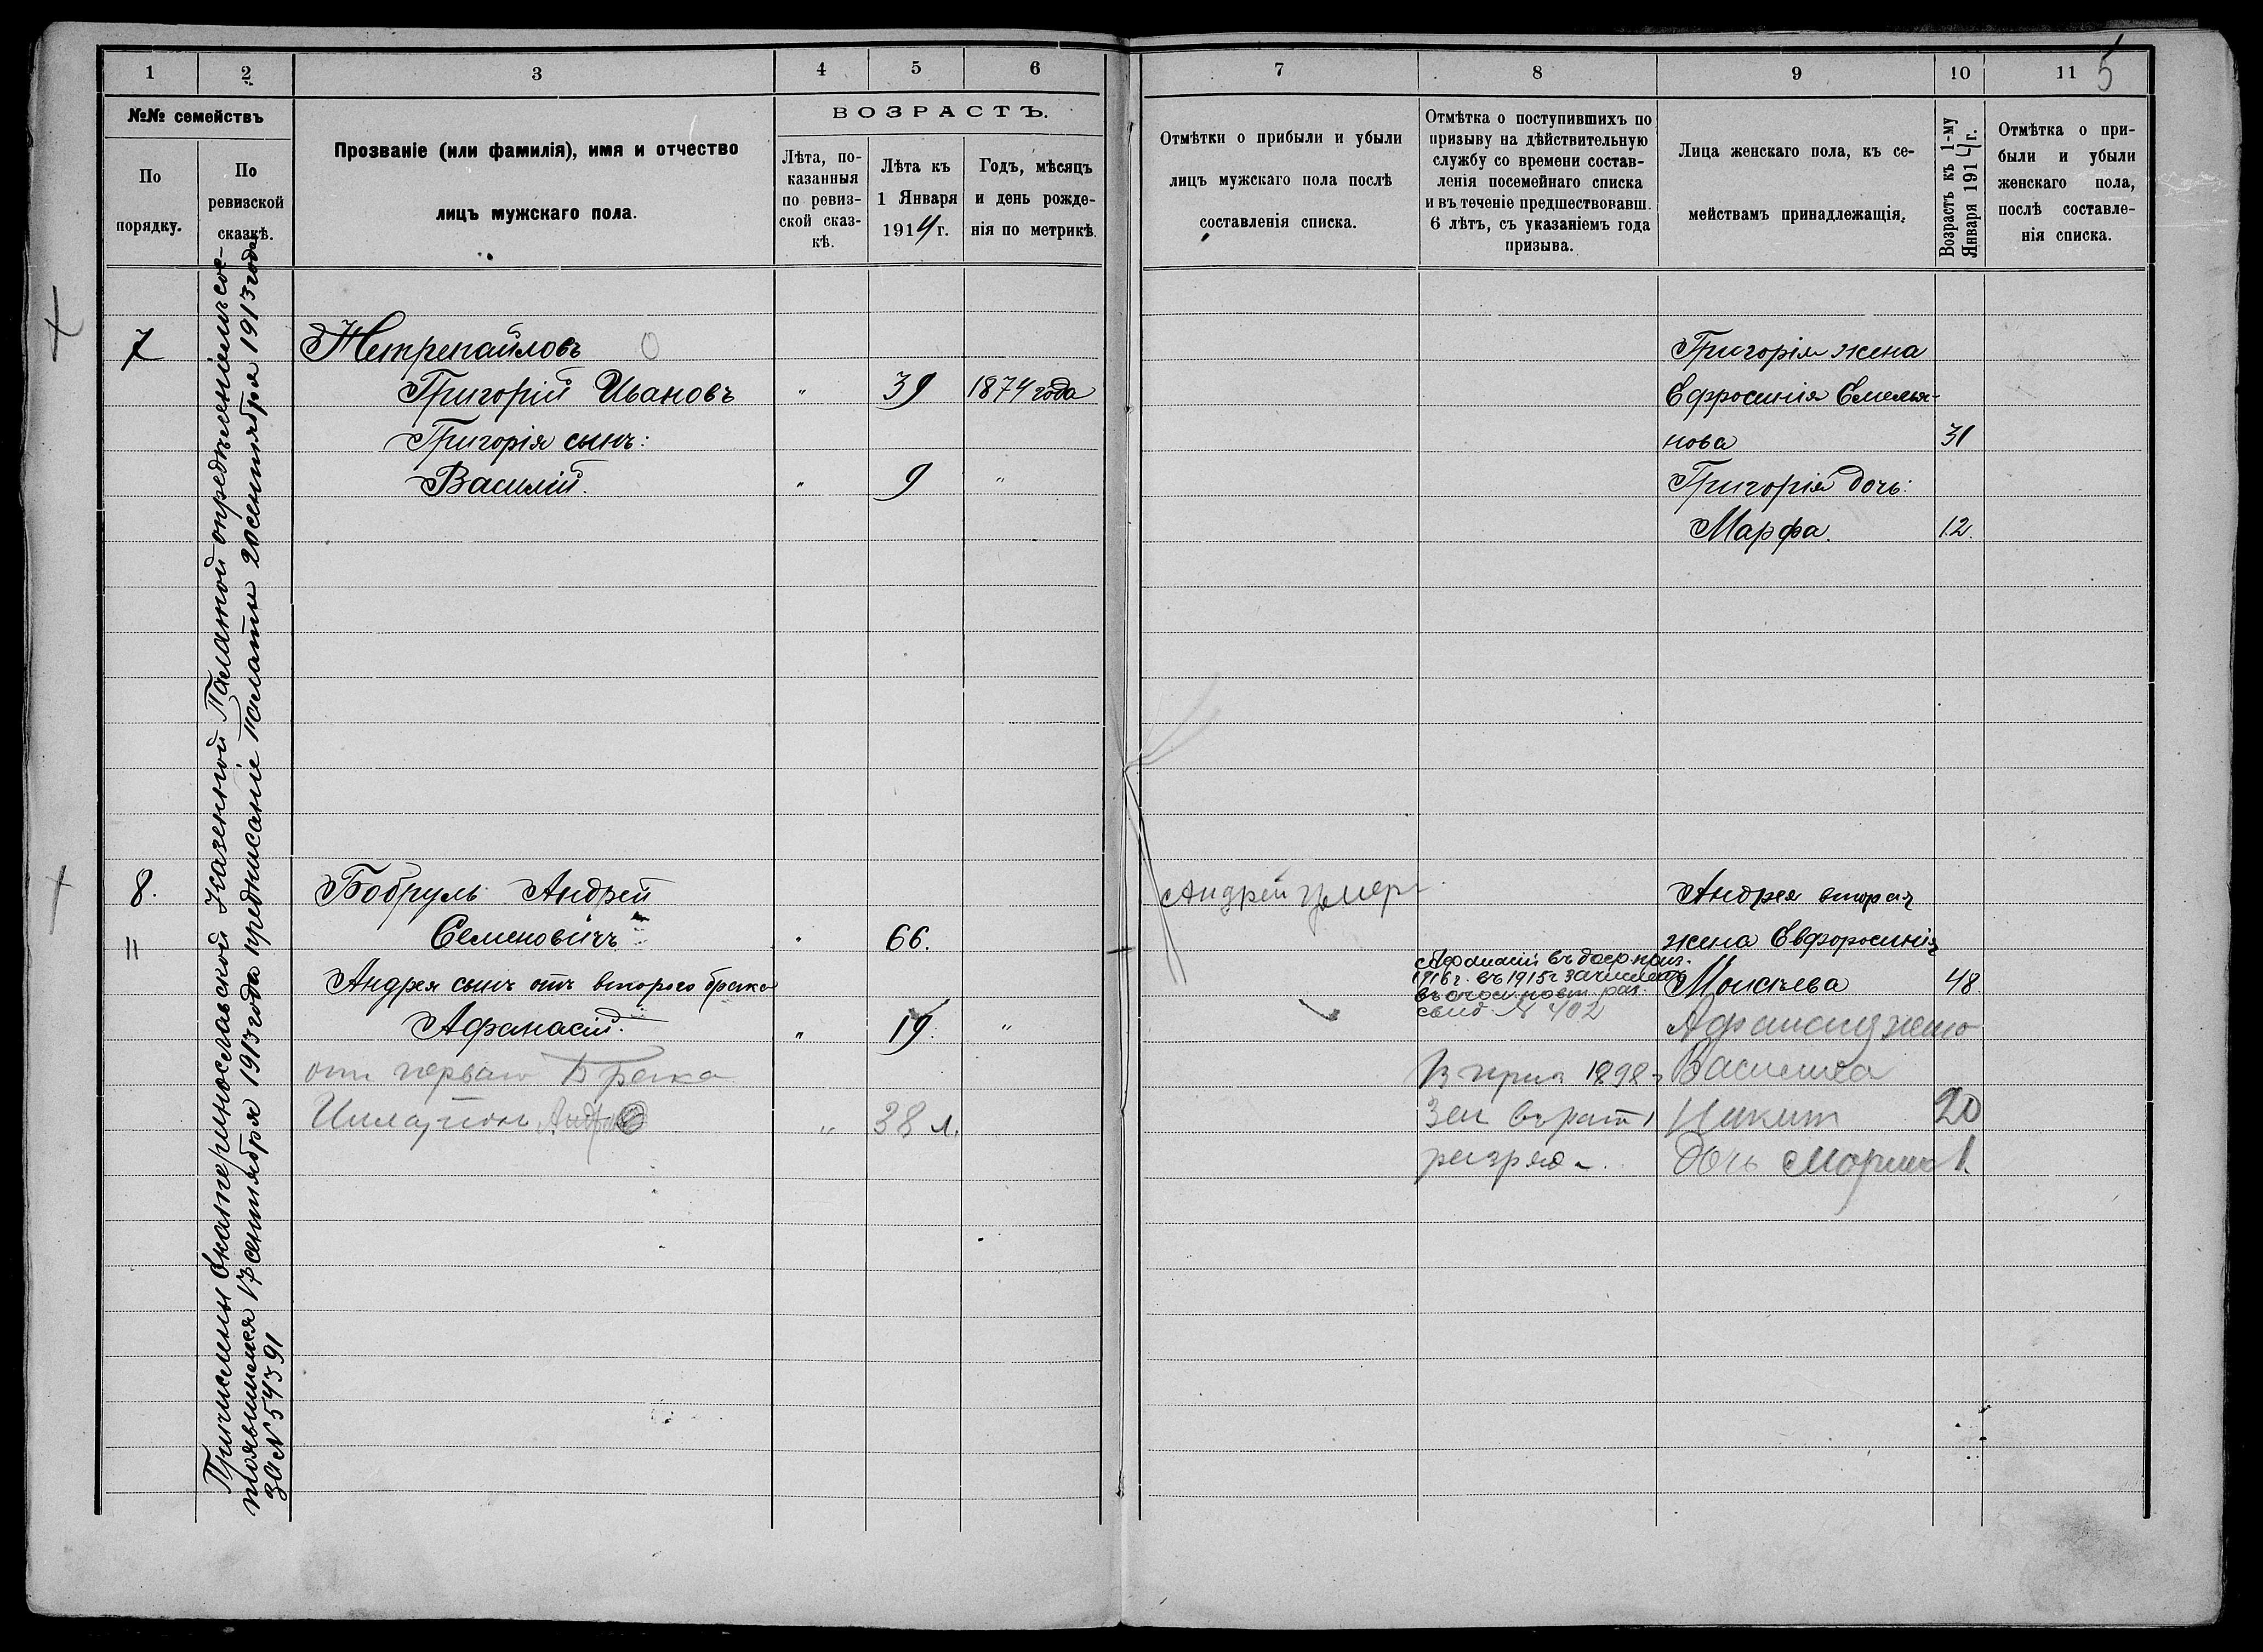 1 2 3 4 5 6
№№ семействъ
По порядку.
По ревизской сказкѣ.
Прозваніе (или фамилія), имя и отчество
лицъ мужскаго пола.
ВОЗРАСТЪ.
Лѣта, по-
казанныя
по ревиз-
ской сказ-
кѣ.
Лѣта къ
1 Января
1914 г.
Годъ, мѣсяцъ
и день рожде-
нія по метрикѣ.
Причислены Екатеринославской Казенной Палатой опредѣленіемъ сос-
тоявшимся 17 сентября 1913 года предписаніе Палаты 20 сентября 1913 года
за № 54391
7 Нетрепайловъ
Григорій Ивановъ " 39 1874 года
Григорія сынъ:
Василій. " 9 "
8. Бобруль Андрей
11 Семеновичъ " 66.
Андрея сынъ отъ второго брака
Афанасій. " 19. "
отъ перваго Брака
" 38 л.
7 8 9 10 11 5
Отмѣтки о прибыли и убыли
лицъ мужскаго пола послѣ
составленія списка.
Отмѣтка о поступившихъ по
призыву на дѣйствительную
службу со времени состав-
ленія посемейнаго списка
и въ теченіе предшествовавш.
6 лѣтъ, съ указаніемъ года
призыва.
Лица женскаго пола, къ се-
мействамъ принадлежащія.
Возрастъ къ 1-му
Января 1914 г.
Отмѣтка о при-
были и убыли
женскаго пола,
послѣ составле-
нія списка.
Григорія жена
Ефросинія Емелья-
нова 31
Григорія дочь:
Марфа. 12.
Андрей умеръ
Андрея вторая
жена Евфоросинія
Моисѣева 48
Афанасій въ
1916 г. въ 1915 г зачисленъ
свид. № 402
Афанасія жена
Василиса
Никит 20
дочь Марина 1.
1898 г
разряд